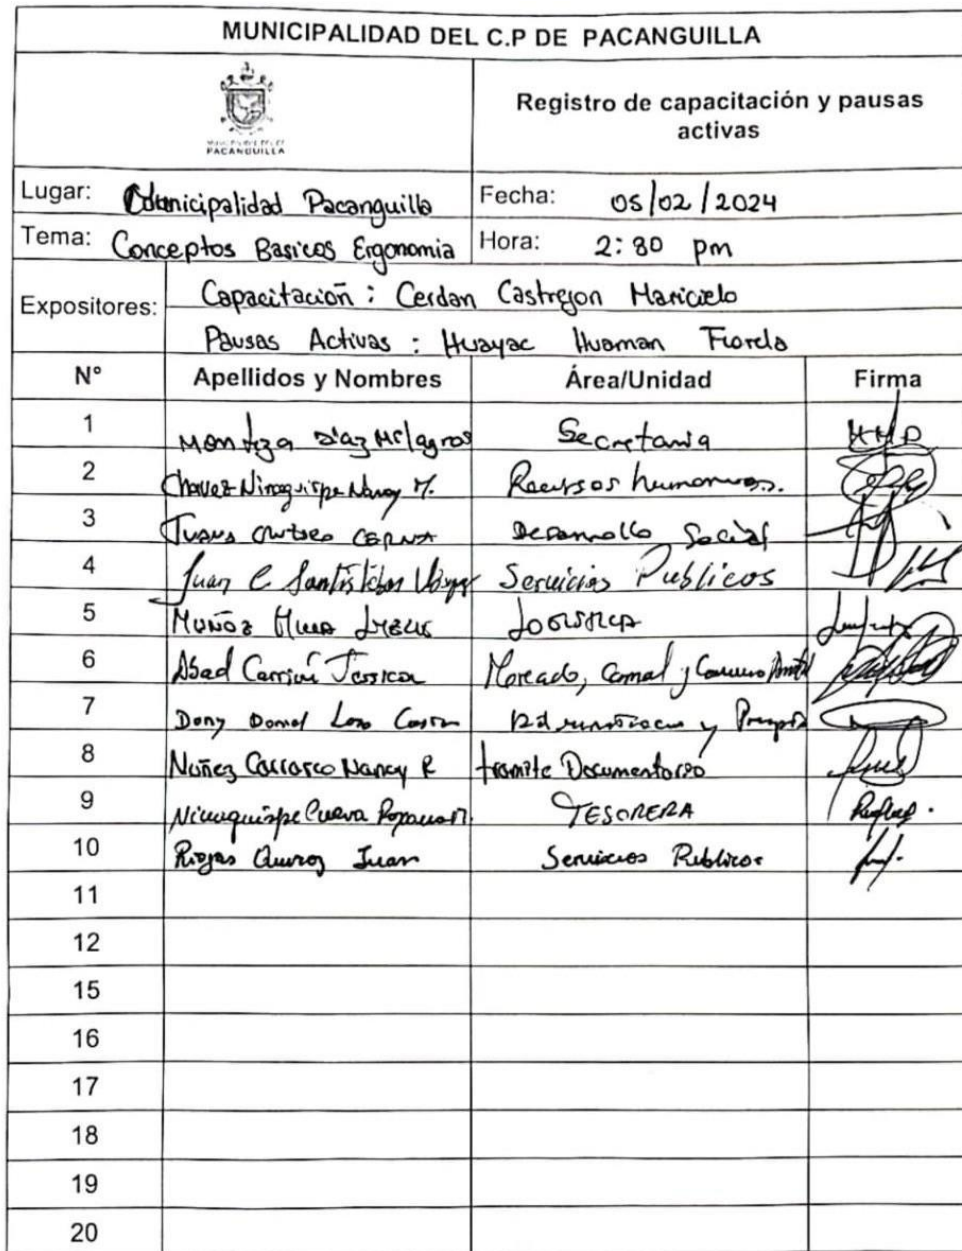 MUNICIPALIDAD DEL C.P DE PACANGUILLA
PACANGUILLA
Registro de capacitación y pausas
activas
Lugar: Municipalidad Pacanguilla
Fecha: 05/02/2024
Tema: Conceptos Basicos Ergonomia
Hora: 2:30 pm
Expositores: Capacitación : Cerdan Castrejon Maricielo
Pausas Activas : Huayac Huaman Fiorela
N° Apellidos y Nombres Área/Unidad Firma
1 Diaz Milagros Secretaria
2 Chavez Ninaquispe Nancy M. Recursos humanos.
3 Juana CERNA Desarrollo Social
4 Juan C Santisteban Servicios Publicos
5 Muñoz
6 Abad Carrión Jessica Mercado, Camal y
7 Dony y
8 Nuñez Carrasco Nancy R tramite Documentario
9 Ninaquispe Cueva TESORERA
10 Riojas Quiroz Juan Servicios Publicos
11
12
15
16
17
18
19
20